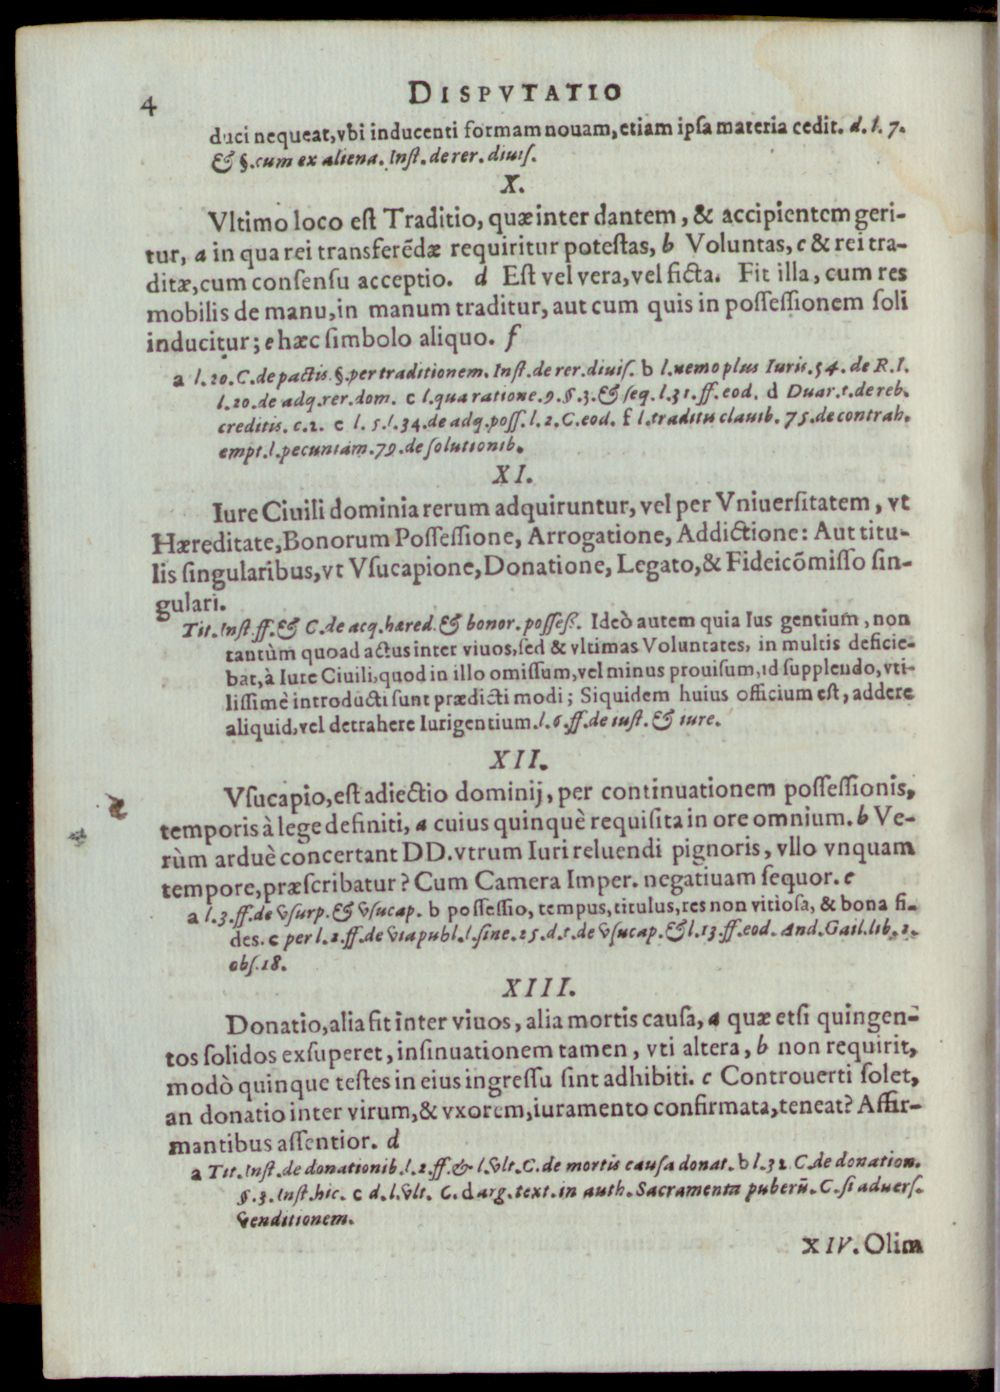 4 DISPVTATIO
duci nequeat, vbi inducenti formam nouam, etiam ipsa materia cedit. d. l. 7.
& §. cum ex aliena. Inst. de rer. diuis.
X.
Vltimo loco est Traditio, quæ inter dantem, & accipientem geri-
tur, a in qua rei transferẽdæ requiritur potestas, b Voluntas, c & rei tra-
ditæ, cum consensu acceptio. d Est vel vera, vel ficta. Fit illa, cum res
mobilis de manu, in manum traditur, aut cum quis in possessionem soli
inducitur; e hæc simbolo aliquo. f
a l. 20. C. de pactis §. per traditionem. Inst. de rer. diuis. b l. nemo plus Iuris. 54. de R. I.
l. 20. de adq. rer. dom. c l. qua ratione. 9. §. 3. & seq. l. 31. ff. eod. d Duar. t. de reb.
creditis. c. 2. e l. 5. l. 34. de adq. poss. l. 2. C. eod. f l. traditu clauib. 75. de contrah.
empt. l. pecuniam. 79. de solutionib.
XI.
Iure Ciuili dominia rerum adquiruntur, vel per Vniuersitatem, vt
Hæreditate, Bonorum Possessione, Arrogatione, Addictione: Aut titu-
lis singularibus, vt Vsucapione, Donatione, Legato, & Fideicõmisso sin-
gulari.
Tit. Inst. ff. & C. de acq. hæred. & bonor. possess. Ideò autem quia Ius gentium, non
tantùm quoad actus inter viuos, sed & vltimas Voluntates, in multis deficie-
bat, à Iure Ciuili, quod in illo omissum, vel minus prouisum, id supplendo, vti-
lissimè introducti sunt prædicti modi; Siquidem huius officium est, addere
aliquid, vel detrahere Iurigentium. l. 6. ff. de iust. & iure.
XII.
Vsucapio, est adiectio dominij, per continuationem possessionis,
temporis à lege definiti, a cuius quinquè requisita in ore omnium. b Ve-
rùm arduè concertant DD. vtrum Iuri reluendi pignoris, vllo vnquam
tempore, præscribatur? Cum Camera Imper. negatiuam sequor. c
a l. 3. ff. de vsurp. & vsucap. b possessio, tempus, titulus, res non vitiosa, & bona fi-
des. c per l. 2. ff. de via publ. l. sine. 25. d. t. de vsucap. & l. 13. ff. eod. And. Gail. lib. 2.
obs. 18.
XIII.
Donatio, alia fit inter viuos, alia mortis causa, a quæ etsi quingen-
tos solidos exsuperet, insinuationem tamen, vti altera, b non requirit,
modò quinque testes in eius ingressu sint adhibiti. c Controuerti solet,
an donatio inter virum, & vxorem, iuramento confirmata, teneat? Affir-
mantibus assentior. d
a Tit. Inst. de donationib. l. 2. ff. & l. vlt. C. de mortis causa donat. b l. 32 C. de donation.
§. 3. Inst. hic. c d. l. vlt. C. d arg. text. in auth. Sacramenta puberũ. C. si aduers.
venditionem.
XIV. Olim